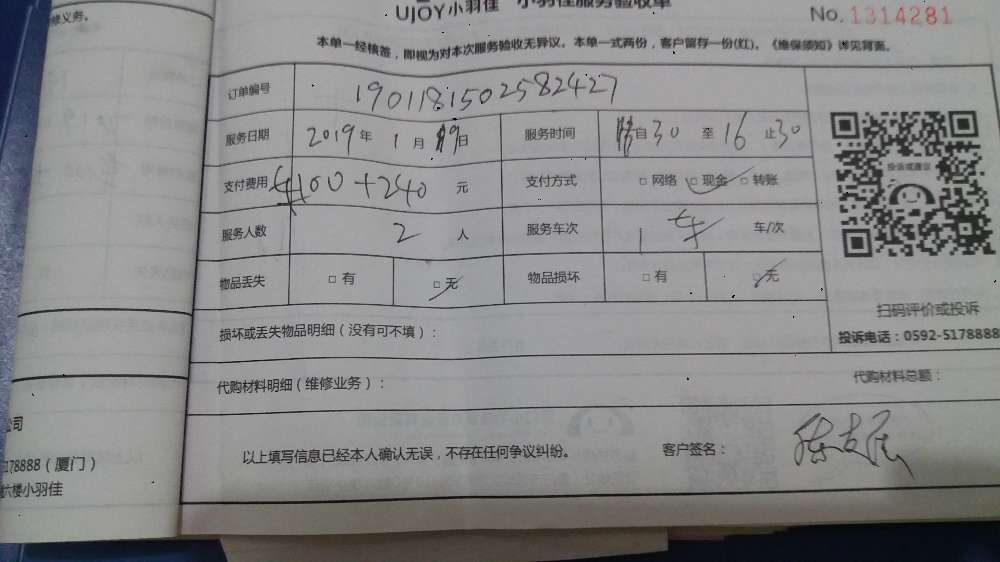 修义务。
UJOY 小羽佳 小羽佳服务验收单
No. 1314281
本单一经核签，即视为对本次服务验收无异议。本单一式两份，客户留存一份(红)。《维保须知》详见背面。
订单编号 1901181502582427
服务日期 2019 年 1 月 19 日 服务时间 自 30 至 16 止 30
支付费用 100+240 元 支付方式 □ 网络 □ 现金 □ 转账
服务人数 2 人 服务车次 1 车 车/次
物品丢失 □ 有 □ 无 物品损坏 □ 有 □ 无
投诉或建议
扫码评价或投诉
投诉电话：0592-5178888
损坏或丢失物品明细（没有可不填）：
代购材料明细（维修业务）： 代购材料总额：
以上填写信息已经本人确认无误，不存在任何争议纠纷。 客户签名：
公司
5178888（厦门）
六楼小羽佳